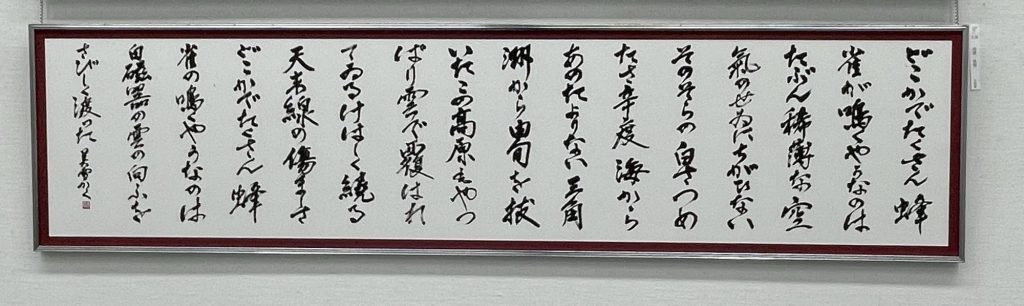 どこかでたくさん蜂
雀が鳴くやうなのは
たぶん稀薄な空
氣のせゐにちがひない
そのそらの白さつめ
たさ辛度海から
あのたよりない三角
洲から由旬を抜
いたこの高原もやつ
ぱり雲で覆はれ
てゐるけはしく繞る
天末線の傷ましさ
どこかでたくさん蜂
雀の鳴くやうなのは
白磁器の雲の向ふを
さびしく渡つた